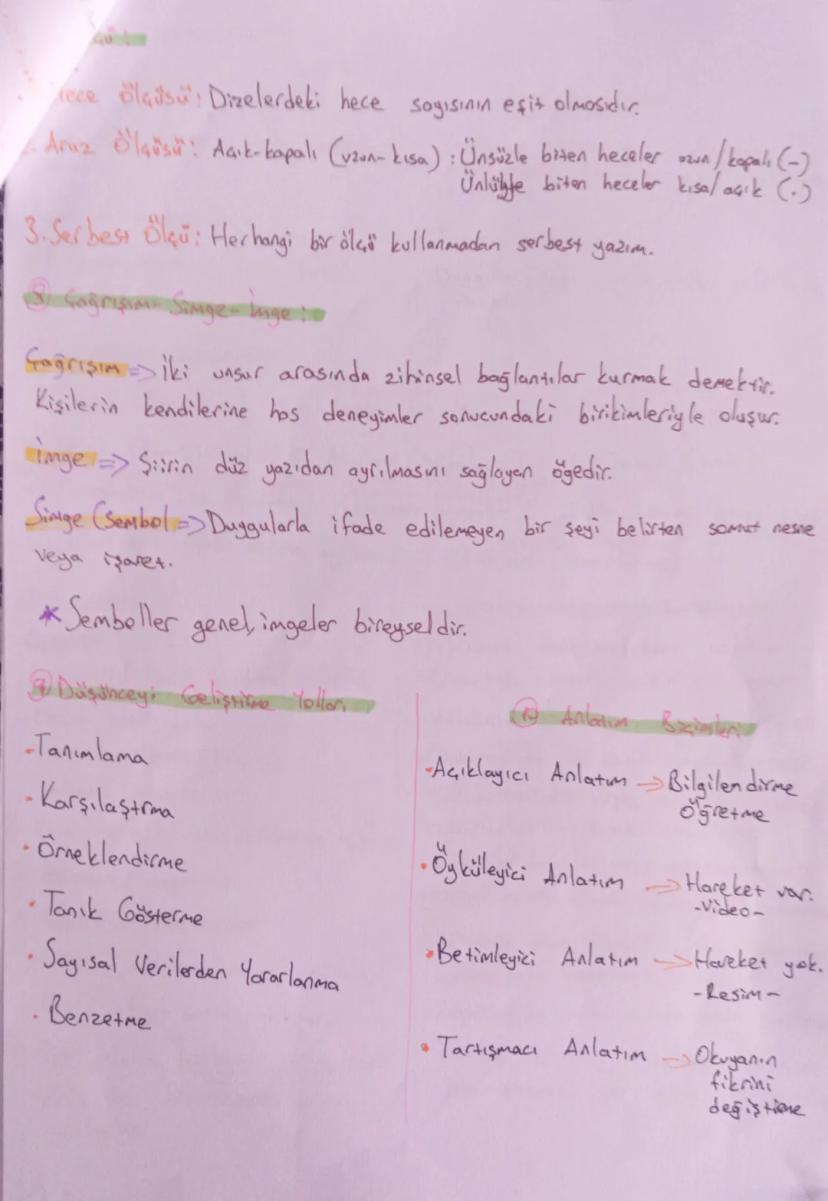 Hece Ölçüsü: Dizelerdeki hece sayısının eşit olmasıdır.
2. Aruz Ölçüsü: Açık-kapalı (uzun-kısa) : Ünsüzle biten heceler uzun/kapalı (-)
Ünlüyle biten heceler kısa/açık (.)
3. Serbest Ölçü: Herhangi bir ölçü kullanmadan serbest yazım.
8 Çağrışım-Simge-İmge:
Çağrışım => İki unsur arasında zihinsel bağlantılar kurmak demektir.
Kişilerin kendilerine has deneyimler sonucundaki birikimleriyle oluşur.
İmge => Şiirin düz yazıdan ayrılmasını sağlayan öğedir.
Simge (Sembol => Duygularla ifade edilemeyen bir şeyi belirten somut nesne
veya işaret.
* Semboller genel, imgeler bireyseldir.
9 Düşünceyi Geliştirme Yolları
- Tanımlama
- Karşılaştırma
- Örneklendirme
- Tanık Gösterme
- Sayısal Verilerden Yararlanma
- Benzetme
10 Anlatım Biçimleri
- Açıklayıcı Anlatım → Bilgilendirme
Öğretme
- Öyküleyici Anlatım → Hareket var.
-Video-
- Betimleyici Anlatım → Hareket yok.
-Resim-
- Tartışmacı Anlatım → Okuyanın
fikrini
değiştirme